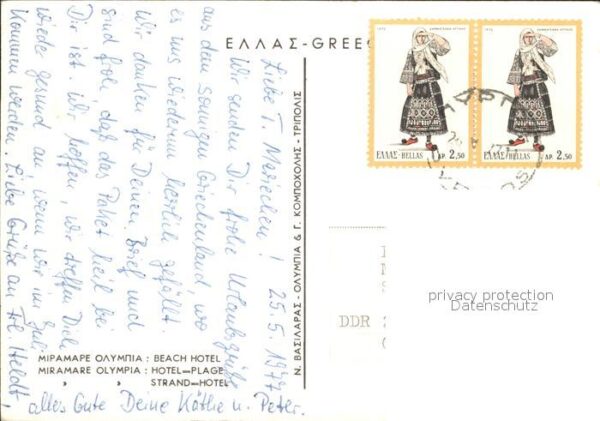 ΕΛΛΑΣ-GREEC
Liebe T. Mariechen! 25.5.1977
Wir senden Dir frohe Urlaubsgrüße
aus dem sonnigen Griechenland, wo
es uns wiederum herrlich gefällt.
Wir danken für Deinen Brief und
sind froh, daß das Paket heil bei
Dir ist. Wir hoffen, wir treffen Dich
wieder gesund an, wenn wir im Juli
kommen werden. Liebe Grüße an Frl. Heldt!
alles Gute Deine Käthe u. Peter.
ΜΙΡΑΜΑΡΕ ΟΛΥΜΠΙΑ : BEACH HOTEL
MIRAMARE OLYMPIA : HOTEL—PLAGE
» » STRAND—HOTEL
Ν. ΒΑΣΙΛΑΡΑΣ - ΟΛΥΜΠΙΑ & Γ. ΚΟΜΠΟΧΟΛΗΣ - ΤΡΙΠΟΛΙΣ
ΕΛΛΑΣ-HELLAS ΔΡ. 2,50
ΕΛΛΑΣ-HELLAS ΔΡ. 2,50
DDR
privacy protection
Datenschutz